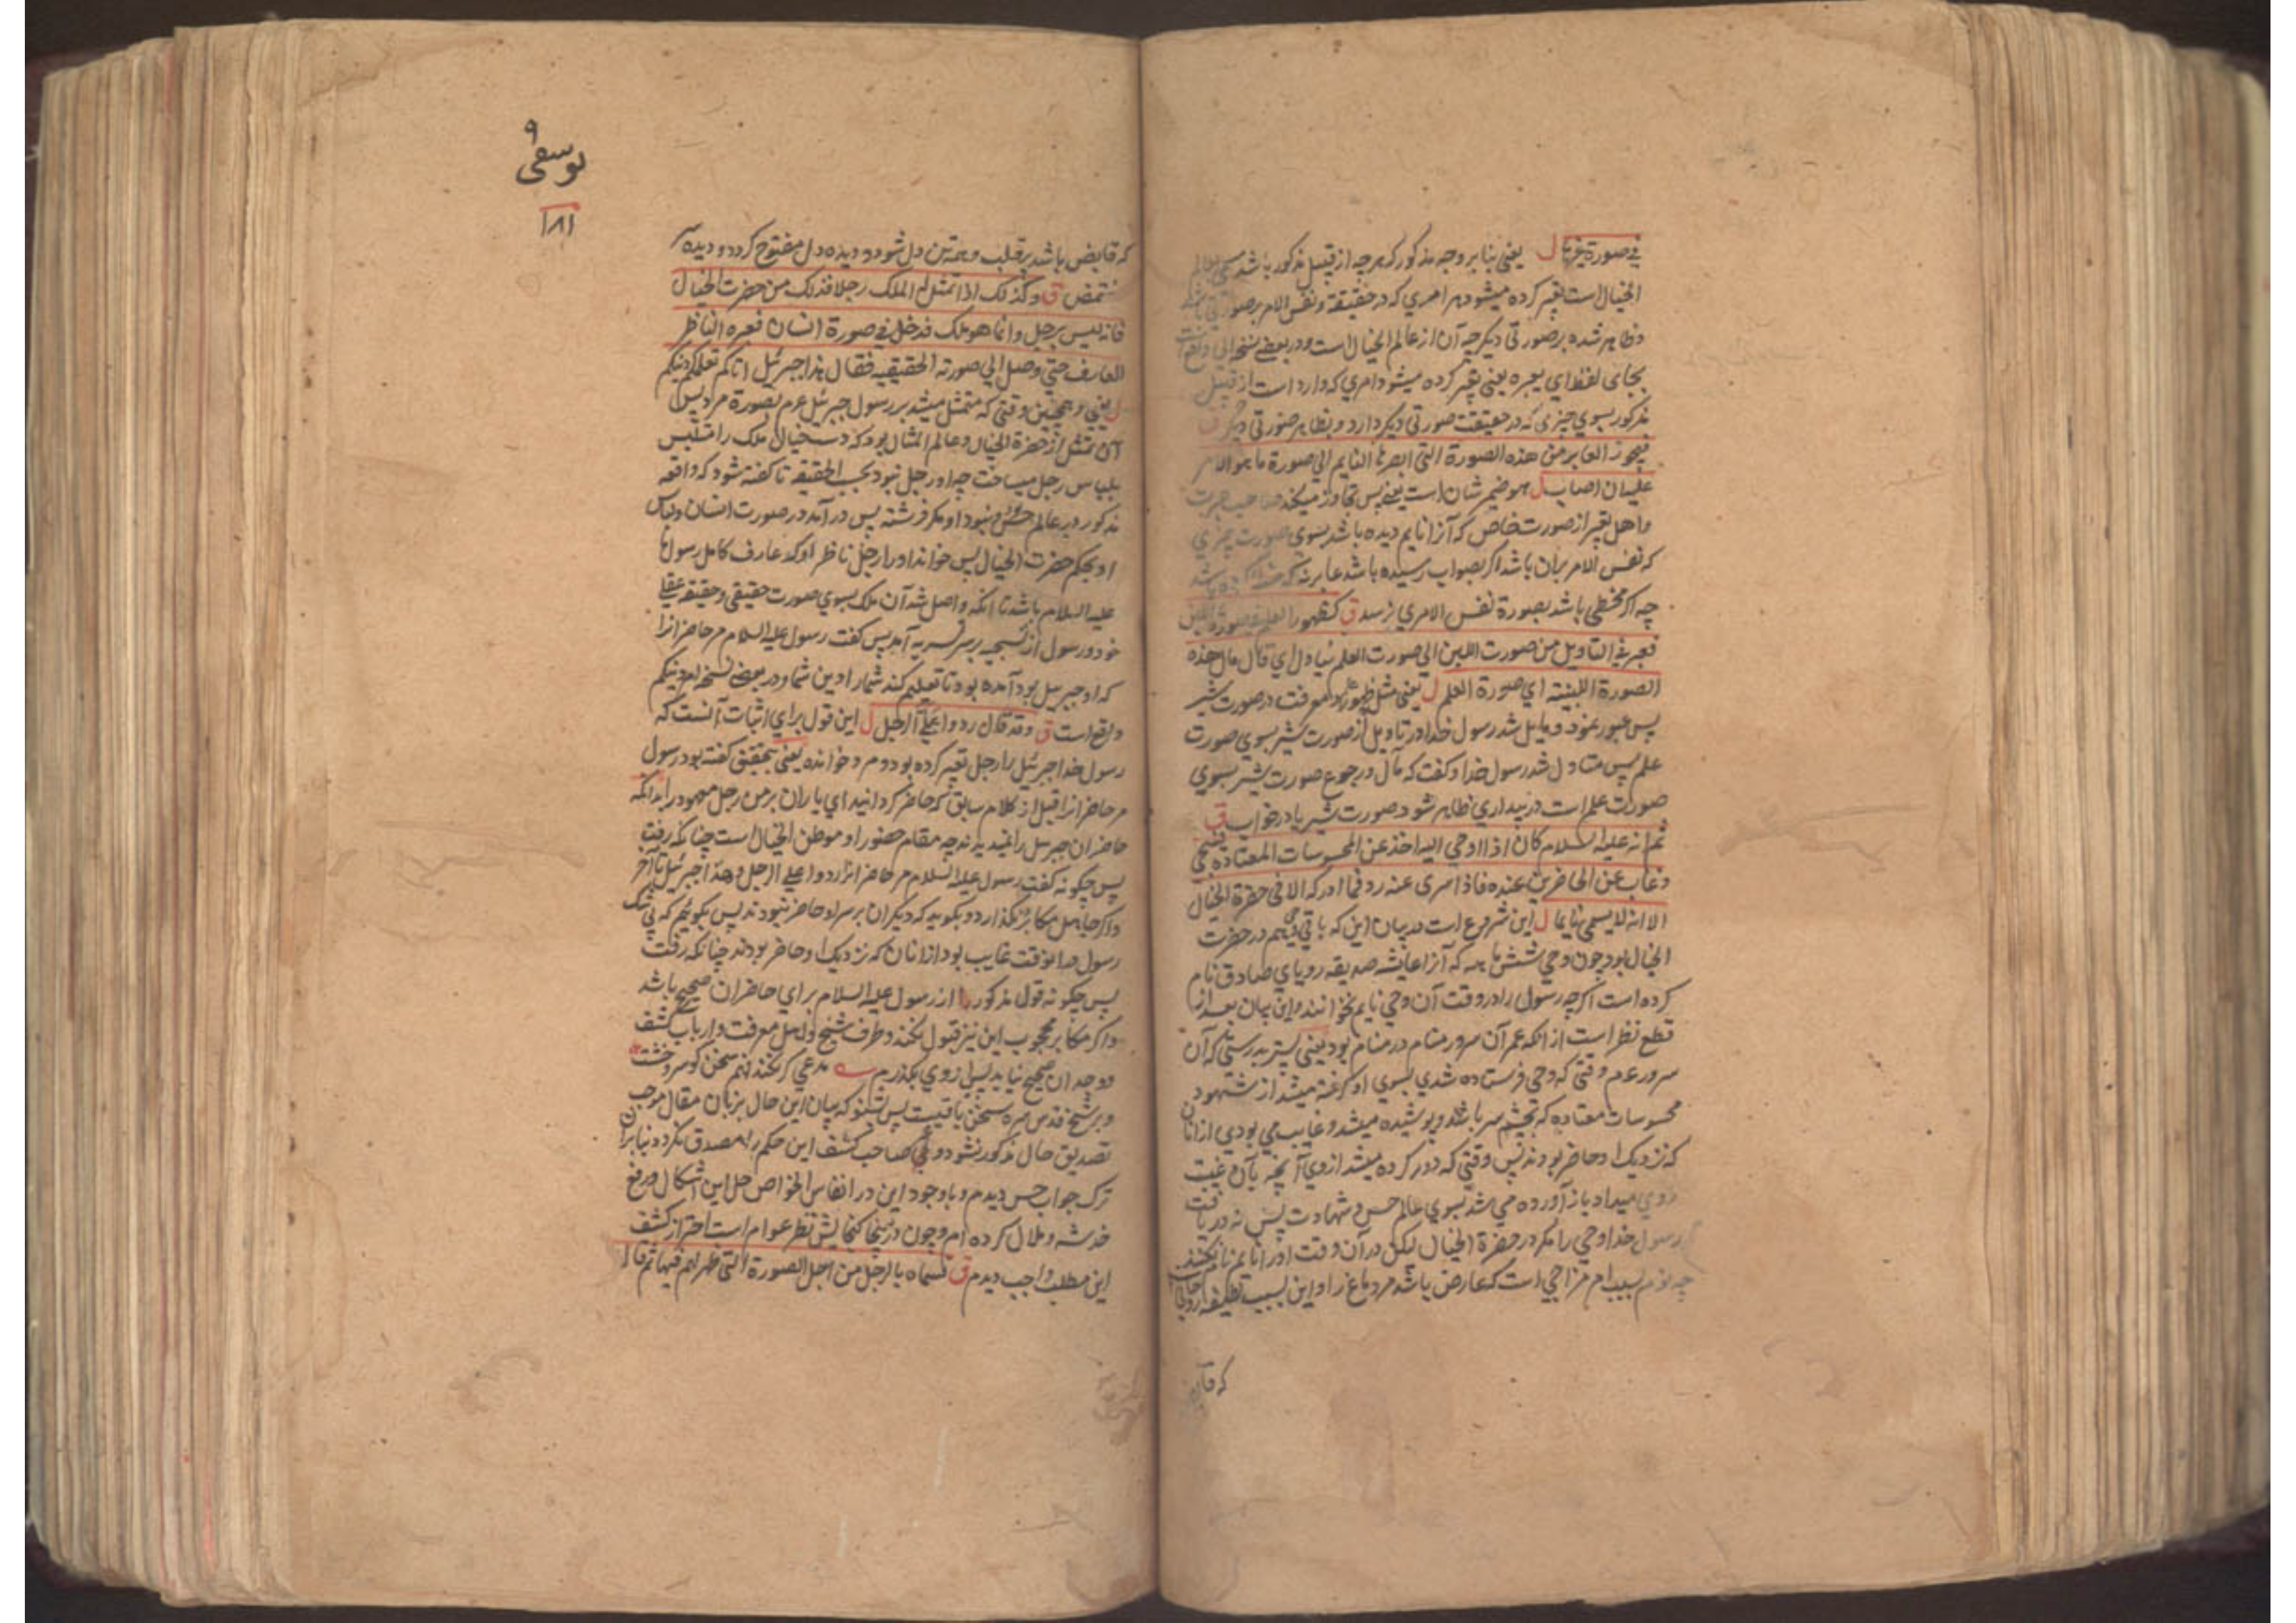 في صورة غيرها ل یعنی بنابر وجه مذکور که هرچه از قبیل مذکور باشد
الخیال است تعبیر کرده میشود هر امری که در حقیقة و نفس الامر بر صورتی باشد
وظاهر شده بر صورتی دیگر چه آن از عالم الخیال است و در بعضی نسخه
بجای لفظ ای یعبره یعنی تعبیر کرده میشود امری که وارد است از قبیل
مذکور بسوی چیزی که در حقیقت صورتی دیگر دارد و بظاهر صورتی دیگر ق
فیجوز العابر من هذه الصورة التی ابصرها النایم الی صورة ما هو الامر
علیه ان اصاب ل هو ضمیر شان است یعنی پس تجاوز میکند صاحب
واهل تعبیر از صورت خاص که آنرا نایم دیده باشد بسوی صورت چیزی
که نفس الامر بران باشد اگر بصواب رسیده باشد عابر
چه اگر مخطی باشد بصورة نفس الامری نرسد ق کظهور العلم فی صورة اللبن
فعبر فی التاویل من صورت اللبن الی صورت العلم فتاول ای قال مال هذه
الصورة اللبنیة ای صورة العلم ل یعنی مثل ظهور علم و معرفت در صورت شیر
پس عبور نمود و مایل شد رسول خدا در تاویل از صورت شیر بسوی صورت
علم پس متاول شد رسول خدا و گفت که مآل و رجوع صورت شیر بسوی
صورت علم است در بیداری ظاهر شود صورت شیر یا در خواب ق
ثم انه علیه السلام کان اذا اوحی الیه اخذ عن المحسوسات المعتاده فسجی
وغاب عن الحاضرین عنده فاذا سری عنه رد فما ادرکه الا فی حضرة الخیال
الا انه لا یسمی نایما ل این شروع است در بیان این که باقی وحی هم در حضرت
الخیال بود چون وحی شش ماهه که آنرا عایشه صدیقه رویای صادق نام
کرده است اگرچه رسول را در وقت آن وحی نایم نخوانند و این بیان بعد از
قطع نظر است از انکه عمر آن سرور منام در منام بود یعنی پستر بدرستی که آن
سرور عم وقتی که وحی فرستاده شدی بسوی او گرفته میشد از شهود
محسوسات معتاده که بچشم سر باشد و پوشیده میشد و غایب می بودی از انان
که نزدیک او حاضر بودند پس وقتی که دور کرده میشد از وی آنچه بآن غیبت
روی میداد باز آورده می شد بسوی عالم حس و شهادت پس نه دریافت
رسول خدا وحی را مگر در حضرة الخیال لیکن در آن وقت او را نایم نام نکنند
چه نوم بسبب امر مزاجی است که عارض باشد مر دماغ را و این بسبب
که فایض
۹
یوسفی
۱۸۱
که فایض باشد بر قلب و همه تن دل شود و دیده دل مفتوح گردد و دیده سر
مغتمض ق وکذلک اذا تمثل له الملک رجلا فذلک من حضرت الخیال
فانه لیس برجل وانما هو ملک فدخل فی صورة انسان فعبره الناظر
العارف حتی وصل الی صورته الحقیقیه فقال هذا جبرئیل اتاکم تعلمکم دینکم
ل یعنی و همچنین وقتی که متمثل میشد بر رسول جبرئیل عم بصورة مرد پس
آن تمثل از حضرة الخیال و عالم المثال بود که دست خیال ملک را متلبس
بلباس رجل میساخت چه او رجل نبود بحسب الحقیقة تا گفته شود که واقعه
مذکور در عالم حس نبود او مگر فرشته پس در آمد در صورت انسان و لباس
او بحکم حضرت الخیال پس خواند او را رجل ناظر او که عارف کامل رسول ما
علیه السلام باشد تا انکه واصل شد آن ملک بسوی صورت حقیقی و حقیقة عقلی
خود و رسول از تسجیه بر سر تسریه آمد پس گفت رسول علیه السلام مر حاضرانرا
که او جبرئیل بود آمده بود تا تعلیم کند شما را دین شما و در بعضی نسخه امر دینکم
واقع است ق وقد قال ردوا علی الرجل ل این قول برای اثبات آنست که
رسول خدا جبرئیل را رجل تعبیر کرده بود و مرد خوانده یعنی بتحقیق گفته بود رسول
مر حاضرانرا قبل از کلام سابق که حاضر گردانید ای یاران بر من رجل معهود را بدانکه
حاضران جبرئیل را نمیدیدند چه مقام حضور او موطن الخیال است چنانکه رفت
پس چگونه گفت رسول علیه السلام مر حاضرانرا ردوا علی الرجل و هذا جبرئیل تا آخر
و اگر جاهل مکابر نگذارد و بگوید که دیگران بر سر او حاضر نبودند پس بگوئیم که بی شک
رسول در انوقت غایب بود از انان که نزدیک او حاضر بودند چنانکه رفت
پس چگونه قول مذکور از رسول علیه السلام برای حاضران صحیح باشد
و اگر مکابر محجوب این نیز قبول نکند و طرف شیخ و اهل معرفت و ارباب کشف
و وجدان صحیح نیاید پس از وی بگذریم مدعی گر نکند فهم سخن گو سر و خشت
و بر شیخ قدس سره سخن باقیست پس بشنو که بیان این حال بزبان مقال موجب
تصدیق حال مذکور نشود و غیر صاحب کشف این حکم را مصدق نگردد بنابران
ترک جواب حس دیدم و باوجود این در انفاس الخواص حل این اشکال و رفع
خدشه و ملال کرده ام و چون در اینجا گنجایش نظر عوام است احتراز کشف
این مطلب واجب دیدم ق فسماه بالرجل من اجل الصورة التی ظهر لهم فیها ثم قال